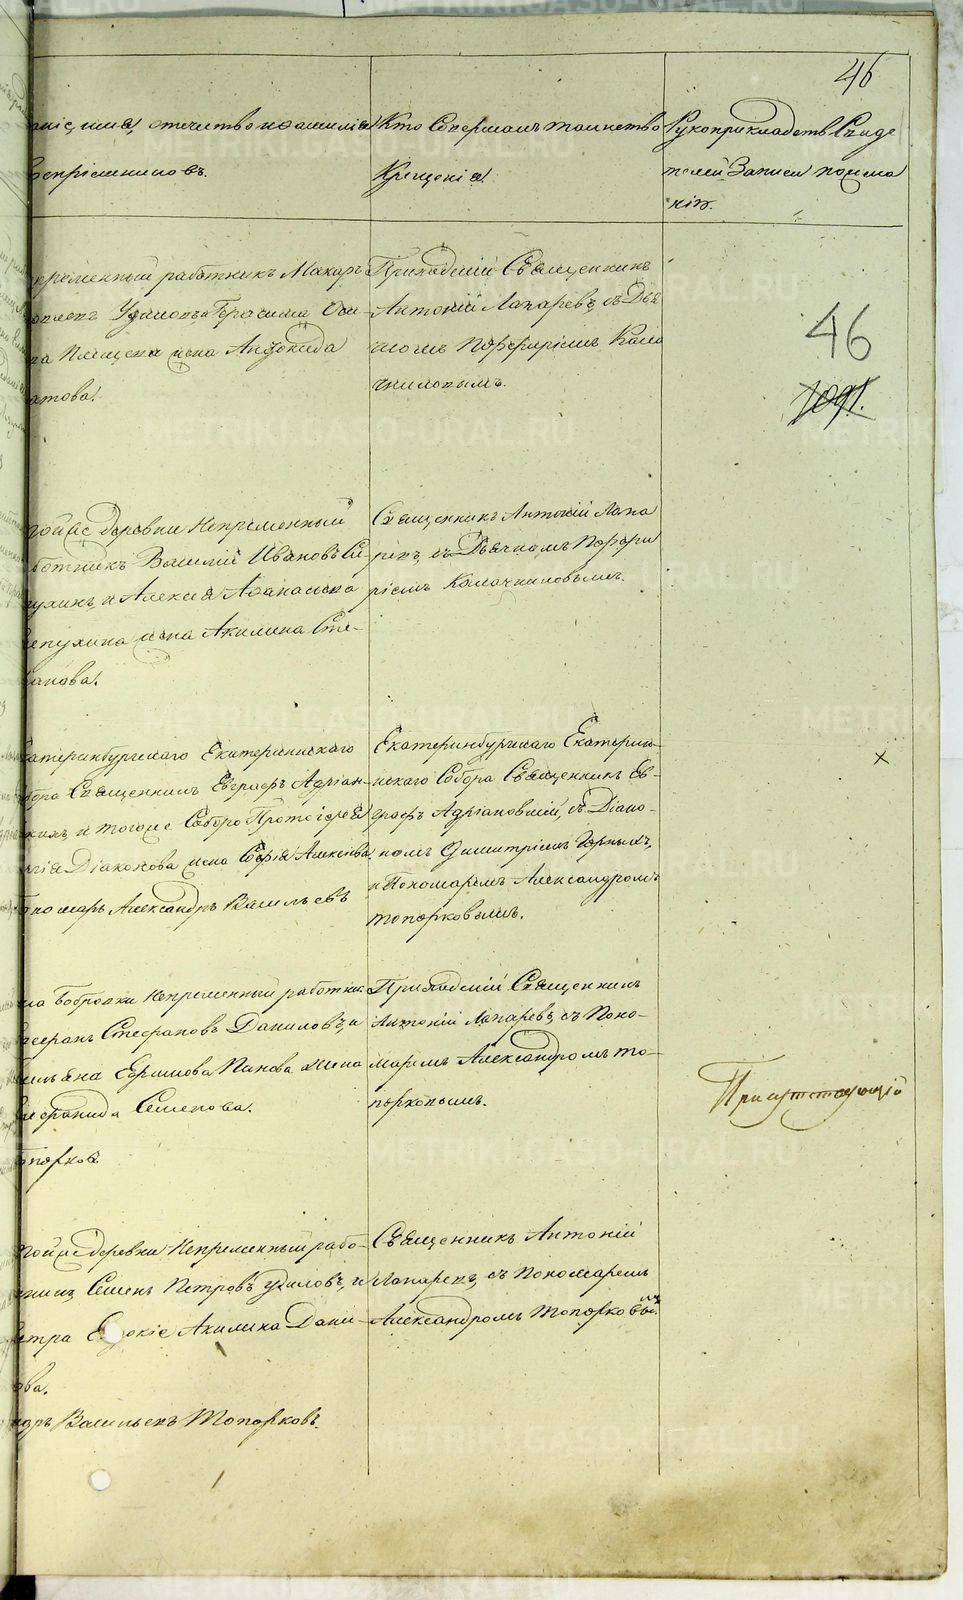 46
аніе, имя, отчество и фамилія
воспріемниковъ.
Кто Совершалъ таинство
Крещенія.
Рукоприкладство Свиде
телей Записи по жела
нію.
непременный работникъ Макаръ
Герасима Оси-
жена
Приходскій Священникъ
Антоній Лапаревъ, съ Дья
чкомъ Порфиріемъ Кала
чниковымъ.
46
1091.
той же деревни Непременный
работникъ Василій Ивановъ Ся-
и Алексея Афанасьева
жена Акилина Сте-
панова.
Священникъ Антоній Лапа
ревъ, съ Дьячкомъ Порфи
ріемъ Калачниковымъ.
Екатеринбургскаго Екатерининскаго
Собора Священникъ Евграфъ Адріан-
и тогоже Собора Протоіерея
Діаконова жена Софія Алексеева
Пономарь Александръ Васильевъ
Екатеринбургскаго Екатерин-
инскаго Собора Священникъ Ев-
графъ Адріановскій, съ Діако-
номъ Димитріемъ Горнымъ,
и Пономаремъ Александромъ
Топорковымъ.
села Бобровки Непременный работни-
Стефановъ Даниловъ, и
Ефимова Панова жена
Семенова.
Топорковъ
Приходскій Священникъ
Антоній Лапаревъ, съ Поно-
маремъ Александромъ То-
порковымъ.
Присутствующій
той же деревни Непременный рабо-
тникъ Семенъ Петровъ Удиловъ, и
Акилина Дани-
лова.
Александръ Васильевъ Топорковъ.
Священникъ Антоній
Лапаревъ, съ Пономаремъ
Александромъ Топорковымъ.
METRIKI.GASO-URAL.RU